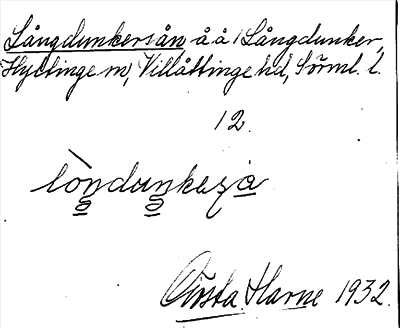 Långdunkersån, å å i Långdunker,
Hyltinge sn, Villåttinge hd, Sörml. l.
12.
Gösta Harne 1932.